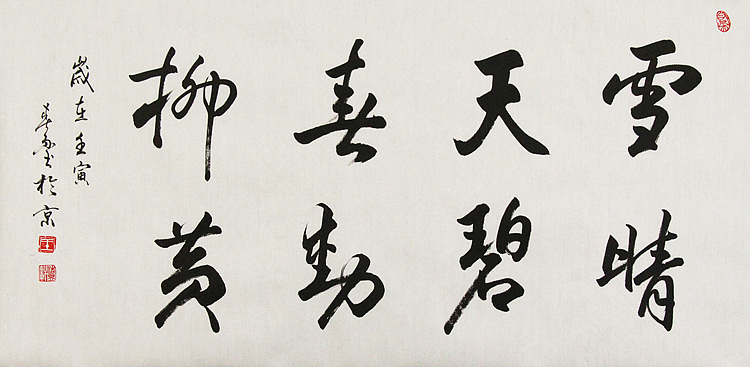 雪晴
天碧
春動
柳黄
歲在壬寅
書於京